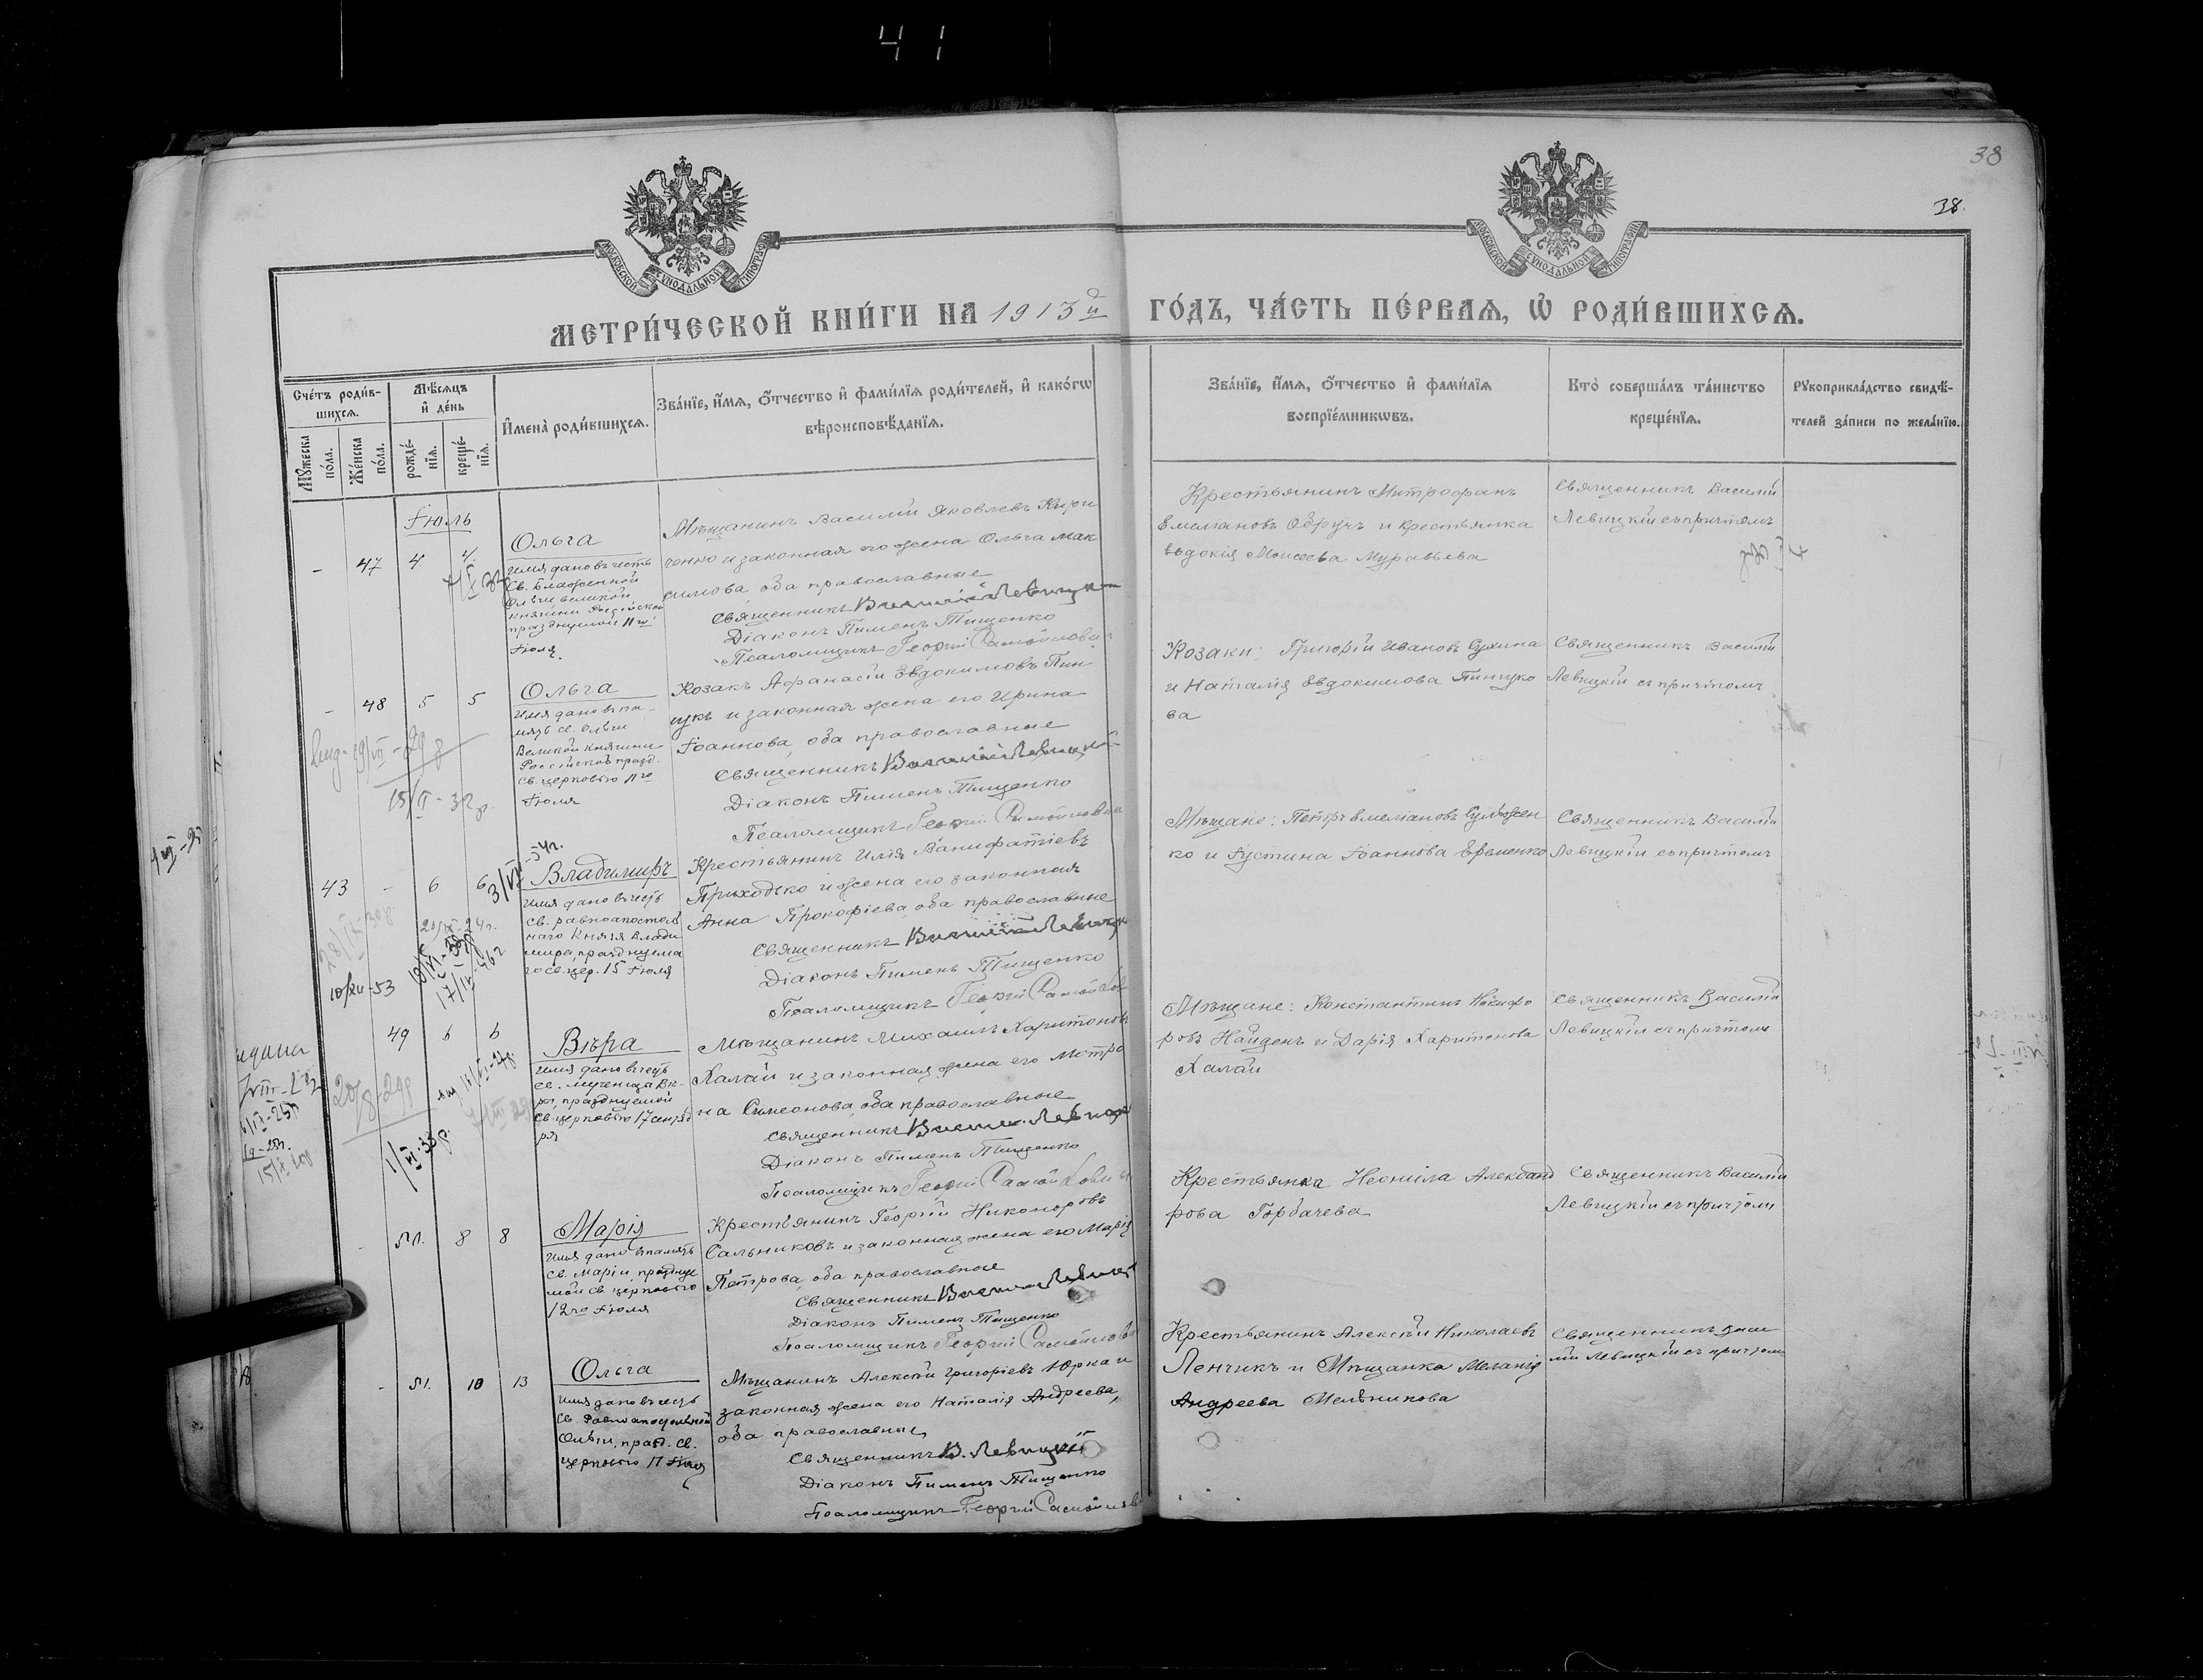 41
38
38.
МОСКОВСКОЙ СѴНОДАЛЬНОЙ ТИПОГРАФІИ
МОСКОВСКОЙ СѴНОДАЛЬНОЙ ТИПОГРАФІИ
МЕТРИ́ЧЕСКОЙ КНИ́ГИ НА 1913й
ГО́ДЪ, ЧА́СТЬ ПЕ́РВАѦ, Ѡ҆ РОДИ́ВШИХСѦ.
Сче́тъ роди́в-
шихсѧ.
Мꙋ́жеска
по́ла.
Же́нска
по́ла.
Мѣ́сѧцъ
и҆ де́нь
рожде́-
нїѧ.
креще́-
нїѧ.
И҆мена̀ роди́вшихсѧ.
Зва́нїе, и҆́мѧ, ѻ҆́тчество и҆ фами́лїѧ роди́телей, и҆ како́гѡ
вѣроисповѣ́данїѧ.
Зва́нїе, и҆́мѧ, ѻ҆́тчество и҆ фами́лїѧ
воспрїе́мникѡвъ.
Кто̀ соверша́лъ та́инство
креще́нїѧ.
Рꙋкоприкла́дство свидѣ́-
телей за́писи по жела́нїю.
Іюль
- 47 4 4
Ольга
имя дано въ честь
Св. Блаженной
Ольги великой
княгини Россійской
празднуемой 11го
Іюля.
Мѣщанинъ Василій Яковлевъ Кири
ченко и законная его жена Ольга Мак
симова оба православные
Священникъ Василій Левицкій
Діаконъ Пименъ Тищенко
Псаломщикъ Георгій Самойлович
Крестьянинъ Митрофанъ
Емеліановъ Обручъ и крестьянка
Евдокія Моисеева Муравьева
Священникъ Василій
Левицкій съ причтомъ
- 48 5 5
Ольга
имя дано въ па-
мять св. Ольги
Великой княгини
Россійской празд.
св. церковію 11го
Іюля
Козакъ Афанасій Евдокимовъ Пин
чукъ и законная жена его Ирина
Іоаннова, оба православные
Священникъ Василій Левицкій
Діаконъ Пименъ Тищенко
Псаломщикъ Георгій Самойлович
Козаки: Григорій Ивановъ Сухина
и Наталія Евдокимова Пинчуко
ва
Священникъ Василій
Левицкій съ причтомъ
15/II - 32 г.
3/VII-54г.
43 - 6 6
Владимиръ
имя дано въ честь
св. равноапостоль
наго Князя Влади
мира, празднуема
го св. цер. 15 Іюля
Крестьянинъ Илія Ванифатіевъ
Приходько и жена его законная
Анна Прокофіева, оба православные
Священникъ Василій Левицкій
Діаконъ Пименъ Тищенко
Псаломщикъ Георгій Самойлов
Мѣщане: Петръ Емеліановъ Сулѣжен
ко и Іустина Іоаннова Еременко
Священникъ Василій
Левицкій съ причтомъ
10/XII-53
- 49 6 6
Вѣра
имя дано въ честь
св. мученицы Вѣ-
ры, празднуемой
св. церковію 17 сентяб
ря
Мѣщанинъ Михаилъ Харитоновъ
Халай и законная жена его Матро
на Симеонова, оба православные
Священникъ Васил. Левицкій
Діаконъ Пименъ Тищенко
Псаломщикъ Георгій Самойлович
Мѣщане: Константинъ Никифо
ровъ Найденъ и Дарія Харитонова
Халай
Священникъ Василій
Левицкій съ причтомъ
1/VI-33р.
- 50. 8 8
Марія
имя дано въ память
св. Маріи празднуе
мой св. церковію
12го Іюля
Крестьянинъ Георгій Никоноровъ
Сальниковъ и законная жена его Марія
Петрова, оба православные
Священникъ Василій Левицкій
Діаконъ Пименъ Тищенко
Псаломщикъ Георгій Самойлов
Крестьянка Неонила Александ
рова Горбачева
Священникъ Василій
Левицкій съ причтомъ
- 51. 10 13
Ольга
имя дано въ честь
св. Равноапостольной
Ольги, празд. св.
церковію 11 Іюля
Мѣщанинъ Алексѣй Григоріевъ Юрка и
законная жена его Наталія Андреева,
оба православные
Священникъ В. Левицкій
Діаконъ Пименъ Тищенко
Псаломщикъ Георгій Самойлов
Крестьянинъ Алексѣй Николаевъ
Ленчикъ и Мѣщанка Меланія
Андреева Мельникова
Священникъ Васи
лій Левицкій съ причтом